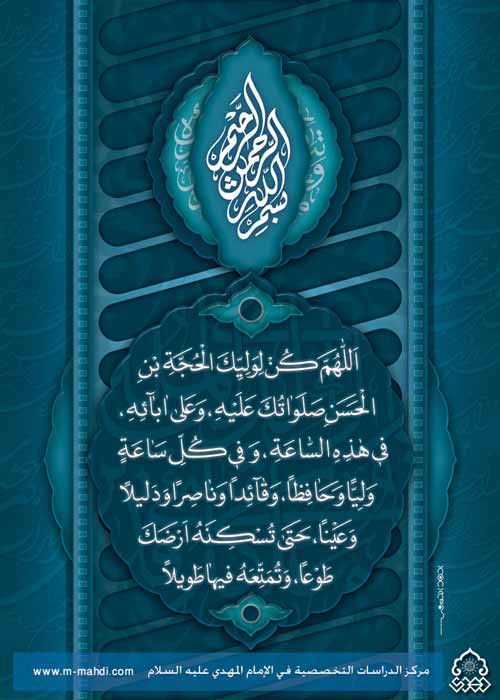 بسم الله الرحمن الرحيم
اَللّٰهُمَّ كُنْ لِوَلِيِّكَ الْحُجَّةِ بْنِ
الْحَسَنِ صَلَوَاتُكَ عَلَيْهِ، وَعَلىٰ اٰبآئِهِ،
في هٰذِهِ السّاعَةِ، وَفي كُلِّ سَاعَةٍ
وَلِيًّا وَحَافِظاً، وَقآئِداً وَنَاصِرًا وَدَليلاً
وَعَيْنًا، حَتّىٰ تُسْكِنَهُ اَرْضَكَ
طَوْعًا، وَتُمَتِّعَهُ فيها طَويلاً
مركز الدراسات التخصصية في الإمام المهدي عليه السلام www.m-mahdi.com